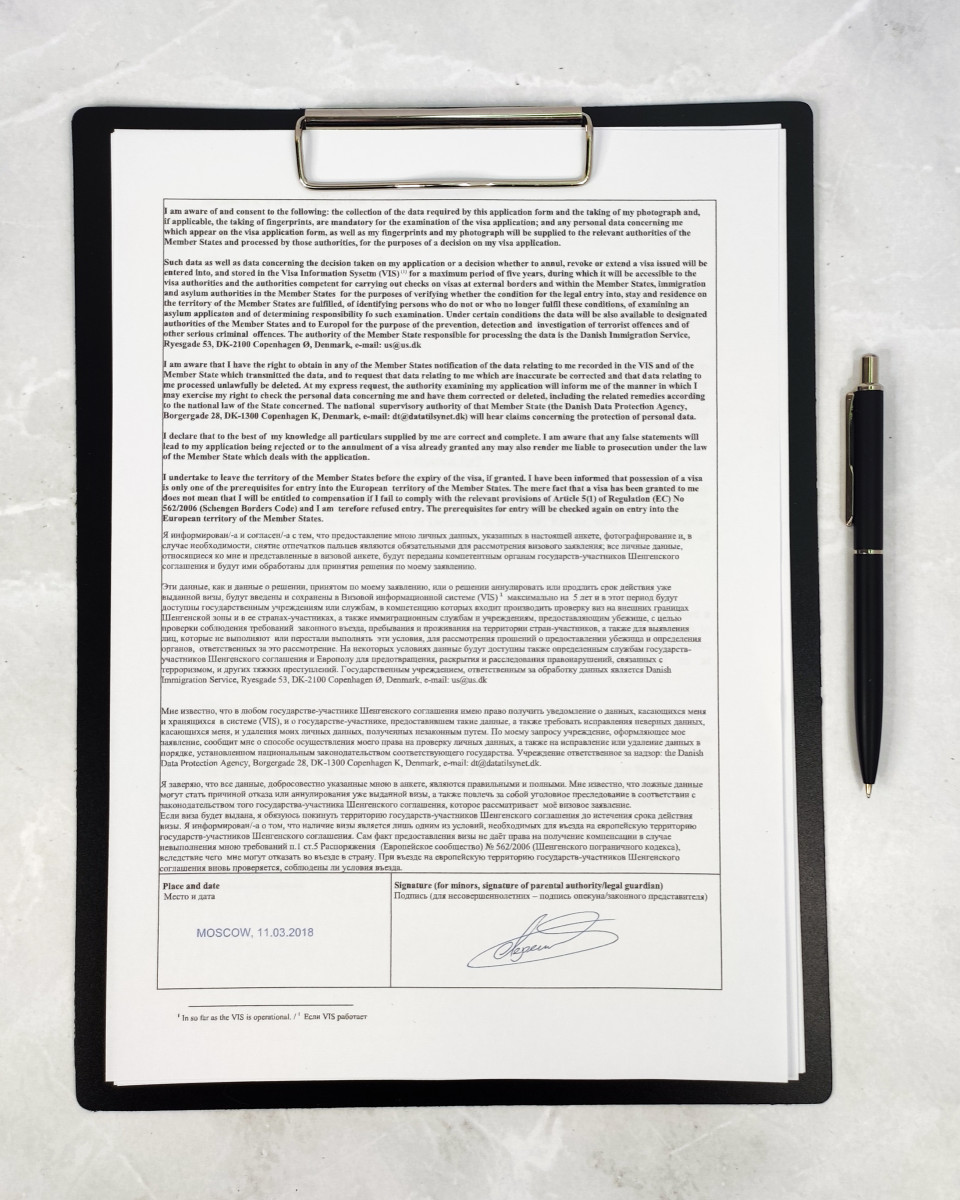 I am aware of and consent to the following: the collection of the data required by this application form and the taking of my photograph and,
if applicable, the taking of fingerprints, are mandatory for the examination of the visa application; and any personal data concerning me
which appear on the visa application form, as well as my fingerprints and my photograph will be supplied to the relevant authorities of the
Member States and processed by those authorities, for the purposes of a decision on my visa application.
Such data as well as data concerning the decision taken on my application or a decision whether to annul, revoke or extend a visa issued will be
entered into, and stored in the Visa Information Sysetm (VIS)⁽¹⁾ for a maximum period of five years, during which it will be accessible to the
visa authorities and the authorities competent for carrying out checks on visas at external borders and within the Member States, immigration
and asylum authorities in the Member States for the purposes of verifying whether the condition for the legal entry into, stay and residence on
the territory of the Member States are fulfilled, of identifying persons who do not or who no longer fulfil these conditions, of examining an
asylum applicaton and of determining responsibility fo such examination. Under certain conditions the data will be also available to designated
authorities of the Member States and to Europol for the purpose of the prevention, detection and investigation of terrorist offences and of
other serious criminal offences. The authority of the Member State responsible for processing the data is the Danish Immigration Service,
Ryesgade 53, DK-2100 Copenhagen Ø, Denmark, e-mail: us@us.dk
I am aware that I have the right to obtain in any of the Member States notification of the data relating to me recorded in the VIS and of the
Member State which transmitted the data, and to request that data relating to me which are inaccurate be corrected and that data relating to
me processed unlawfully be deleted. At my express request, the authority examining my application will inform me of the manner in which I
may exercise my right to check the personal data concerning me and have them corrected or deleted, including the related remedies according
to the national law of the State concerned. The national supervisory authority of that Member State (the Danish Data Protection Agency,
Borgergade 28, DK-1300 Copenhagen K, Denmark, e-mail: dt@datatilsynet.dk) will hear claims concerning the protection of personal data.
I declare that to the best of my knowledge all particulars supplied by me are correct and complete. I am aware that any false statements will
lead to my application being rejected or to the annulment of a visa already granted any may also render me liable to prosecution under the law
of the Member State which deals with the application.
I undertake to leave the territory of the Member States before the expiry of the visa, if granted. I have been informed that possession of a visa
is only one of the prerequisites for entry into the European territory of the Member States. The mere fact that a visa has been granted to me
does not mean that I will be entitled to compensation if I fail to comply with the relevant provisions of Article 5(1) of Regulation (EC) No
562/2006 (Schengen Borders Code) and I am terefore refused entry. The prerequisites for entry will be checked again on entry into the
European territory of the Member States.
Я информирован/-а и согласен/-а с тем, что предоставление мною личных данных, указанных в настоящей анкете, фотографирование и, в
случае необходимости, снятие отпечатков пальцев являются обязательными для рассмотрения визового заявления; все личные данные,
относящиеся ко мне и представленные в визовой анкете, будут переданы компетентным органам государств-участников Шенгенского
соглашения и будут ими обработаны для принятия решения по моему заявлению.
Эти данные, как и данные о решении, принятом по моему заявлению, или о решении аннулировать или продлить срок действия уже
выданной визы, будут введены и сохранены в Визовой информационной системе (VIS) ¹ максимально на 5 лет и в этот период будут
доступны государственным учреждениям или службам, в компетенцию которых входит производить проверку виз на внешних границах
Шенгенской зоны и в ее странах-участниках, а также иммиграционным службам и учреждениям, предоставляющим убежище, с целью
проверки соблюдения требований законного въезда, пребывания и проживания на территории стран-участников, а также для выявления
лиц, которые не выполняют или перестали выполнять эти условия, для рассмотрения прошений о предоставлении убежища и определения
органов, ответственных за это рассмотрение. На некоторых условиях данные будут доступны также определенным службам государств-
участников Шенгенского соглашения и Европолу для предотвращения, раскрытия и расследования правонарушений, связанных с
терроризмом, и других тяжких преступлений. Государственным учреждением, ответственным за обработку данных является Danish
Immigration Service, Ryesgade 53, DK-2100 Copenhagen Ø, Denmark, e-mail: us@us.dk
Мне известно, что в любом государстве-участнике Шенгенского соглашения имею право получить уведомление о данных, касающихся меня
и хранящихся в системе (VIS), и о государстве-участнике, предоставившем такие данные, а также требовать исправления неверных данных,
касающихся меня, и удаления моих личных данных, полученных незаконным путем. По моему запросу учреждение, оформляющее мое
заявление, сообщит мне о способе осуществления моего права на проверку личных данных, а также на исправление или удаление данных в
порядке, установленном национальным законодательством соответствующего государства. Учреждение ответственное за надзор: the Danish
Data Protection Agency, Borgergade 28, DK-1300 Copenhagen K, Denmark, e-mail: dt@datatilsynet.dk.
Я заверяю, что все данные, добросовестно указанные мною в анкете, являются правильными и полными. Мне известно, что ложные данные
могут стать причиной отказа или аннулирования уже выданной визы, а также повлечь за собой уголовное преследование в соответствии с
законодательством того государства-участника Шенгенского соглашения, которое рассматривает моё визовое заявление.
Если виза будет выдана, я обязуюсь покинуть территорию государств-участников Шенгенского соглашения до истечения срока действия
визы. Я информирован/-а о том, что наличие визы является лишь одним из условий, необходимых для въезда на европейскую территорию
государств-участников Шенгенского соглашения. Сам факт предоставления визы не даёт права на получение компенсации в случае
невыполнения мною требований п.1 ст.5 Распоряжения (Европейское сообщество) № 562/2006 (Шенгенского пограничного кодекса),
вследствие чего мне могут отказать во въезде в страну. При въезде на европейскую территорию государств-участников Шенгенского
соглашения вновь проверяется, соблюдены ли условия въезда.
Place and date
Место и дата
MOSCOW, 11.03.2018
Signature (for minors, signature of parental authority/legal guardian)
Подпись (для несовершеннолетних – подпись опекуна/законного представителя)
¹ In so far as the VIS is operational. / ¹ Если VIS работает